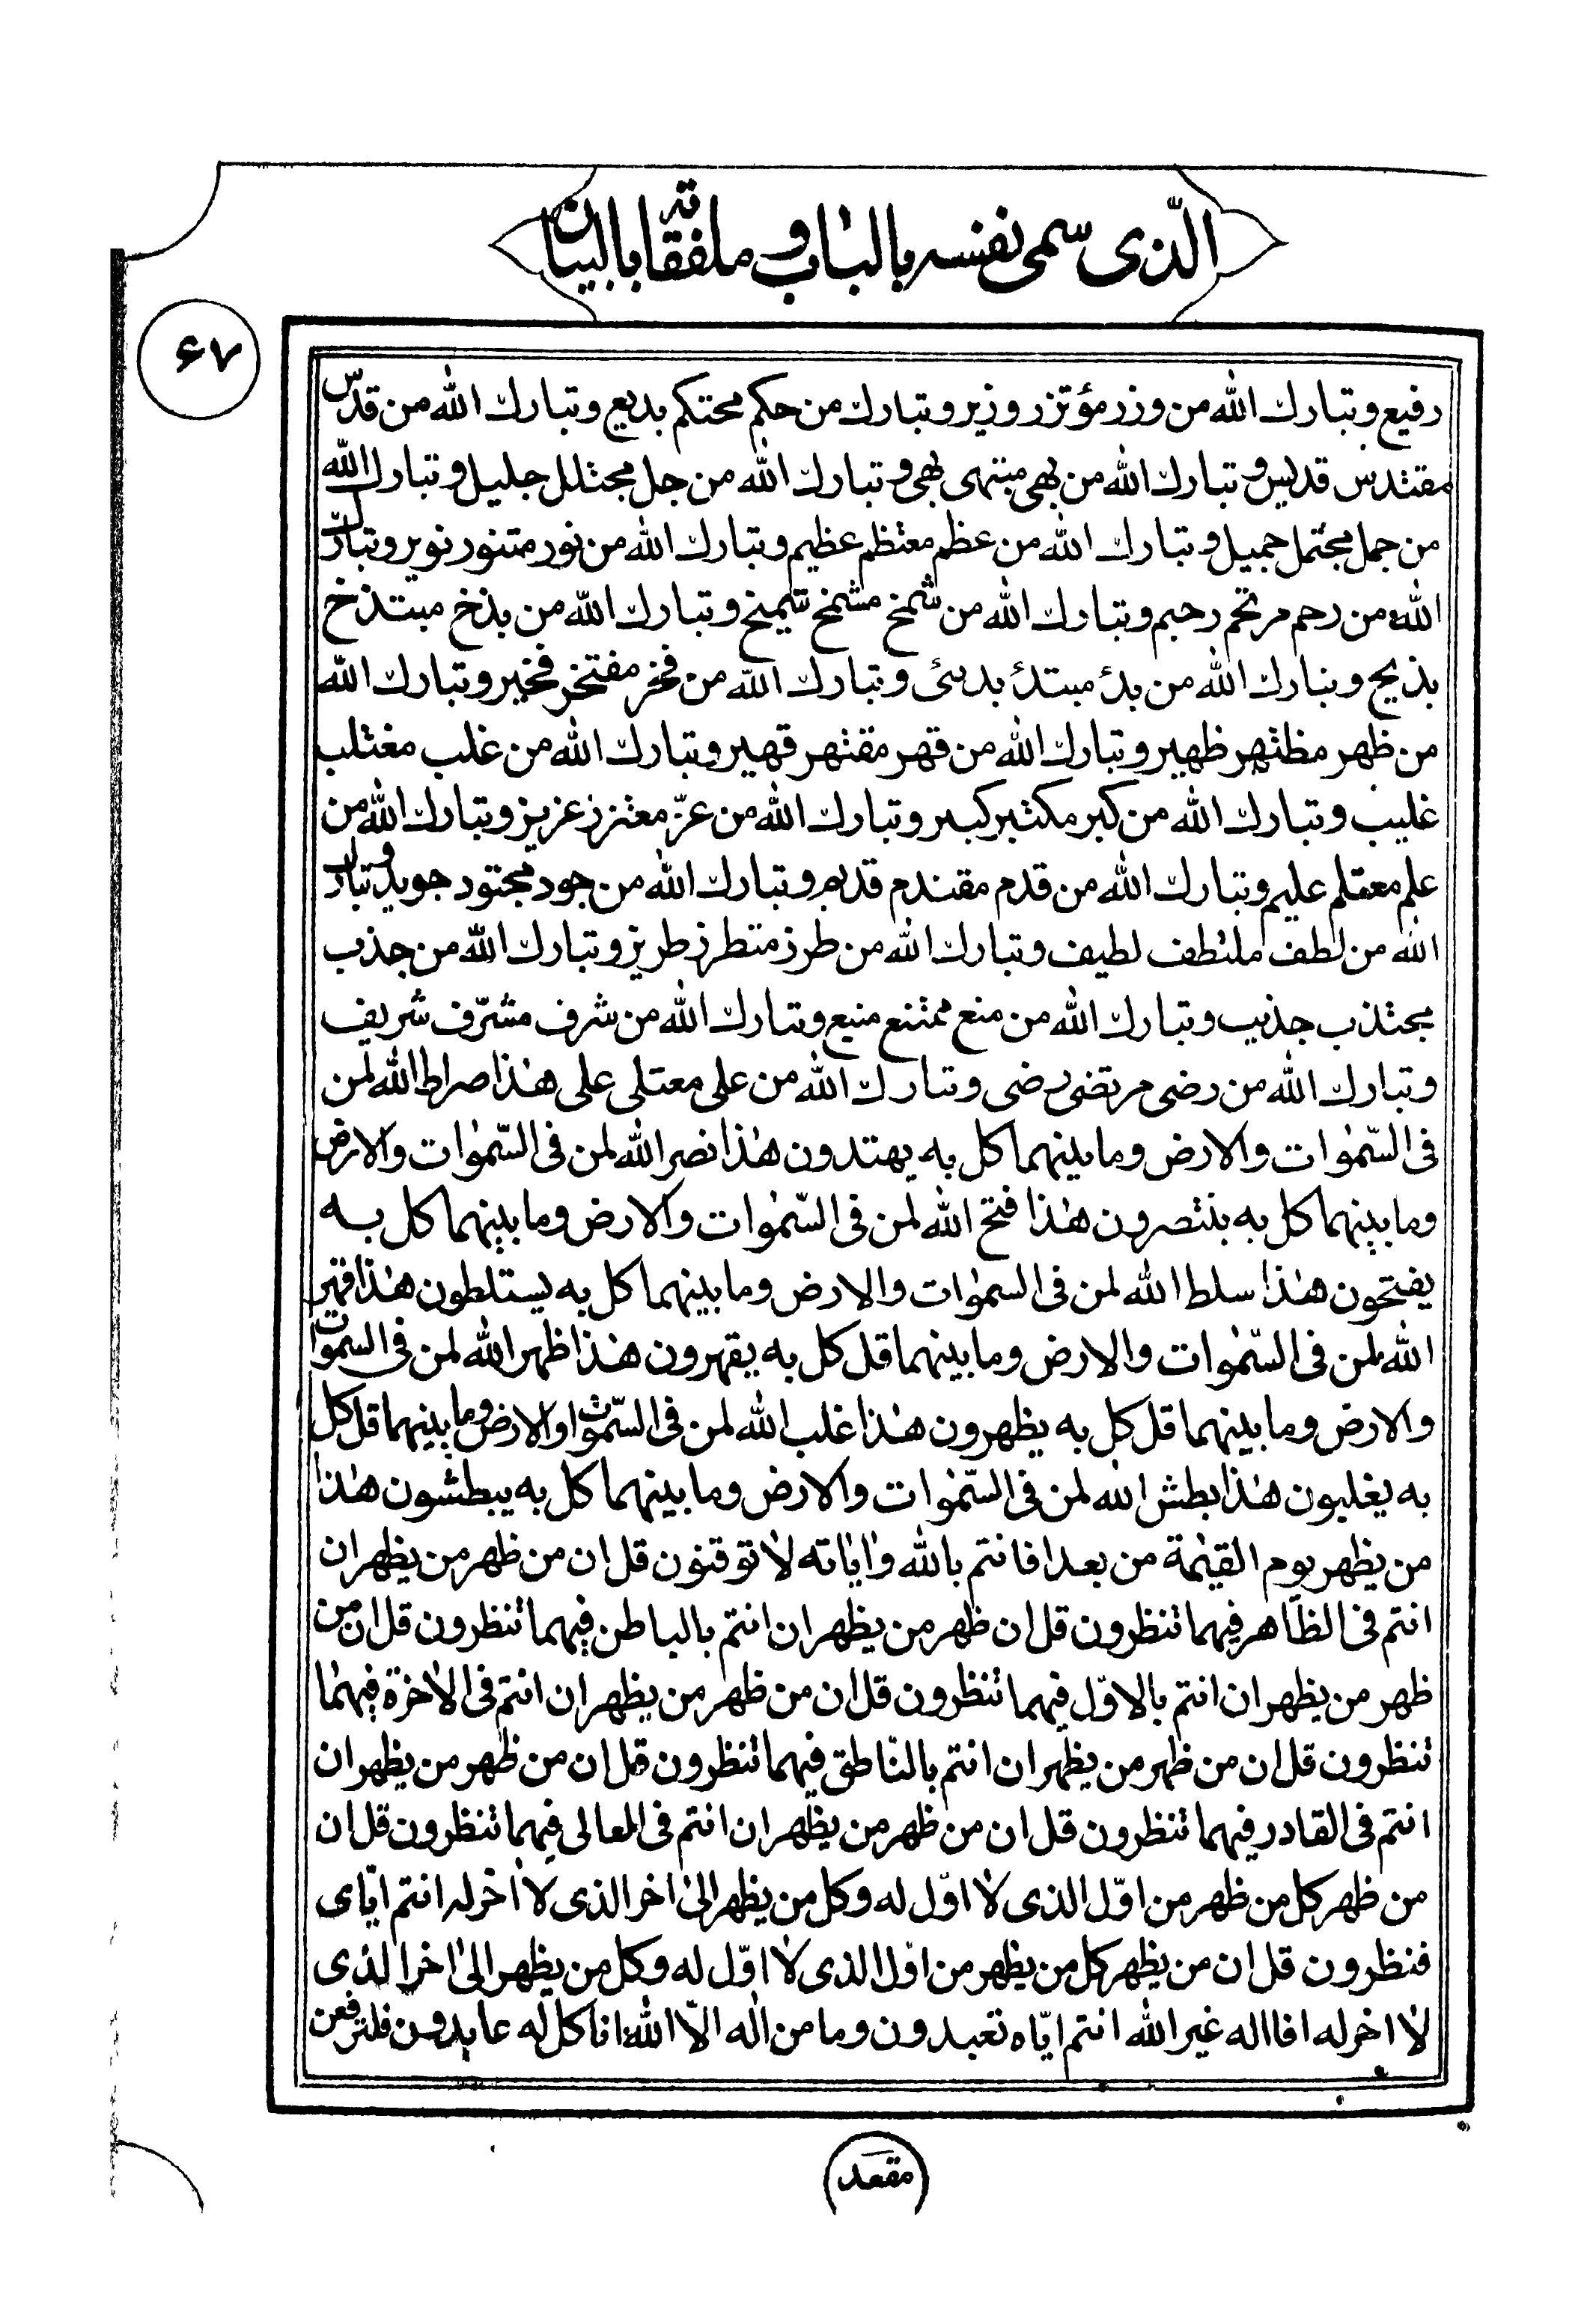 الّذی سمی نفسه بالباب و ملفقاته بالبیان
۶۷
رفیع وتبارك الله من وزر مؤتزر وزیر وتبارك من حکم محتکم بدیع وتبارك الله من قدّس
مقتدس قدیس وتبارك الله من بهی مبتهی بهی وتبارك الله من جلل مجتلل جلیل وتبارك الله
من جمل مجتمل جمیل وتبارك الله من عظم معتظم عظیم وتبارك الله من نور متنور نویر وتبارك
الله من رحم مرتحم رحیم وتبارك الله من شمخ مشتمخ شمیخ وتبارك الله من بذخ مبتذخ
بذیخ وتبارك الله من بدئ مبتدئ بدیئ وتبارك الله من فخر مفتخر فخیر وتبارك الله
من ظهر مظتهر ظهیر وتبارك الله من قهر مقتهر قهیر وتبارك الله من غلب مغتلب
غلیب وتبارك الله من کبر مکتبر کبیر وتبارك الله من عزّ معتزز عزیز وتبارك الله من
علم معتلم علیم وتبارك الله من قدم مقتدم قدیم وتبارك الله من جود مجتود جوید وتبارك
الله من لطف ملتطف لطیف وتبارك الله من طرز متطرز طریز وتبارك الله من جذب
مجتذب جذیب وتبارك الله من منع ممتنع منیع وتبارك الله من شرف مشترف شریف
وتبارك الله من رضی مرتضی رضی وتبارك الله من علی معتلی علی هذا صراط الله لمن
فی السّموات والارض وما بینهما کل به یهتدون هذا نصر الله لمن فی السّموات والارض
وما بینهما کل به ینتصرون هذا فتح الله لمن فی السّموات والارض وما بینهما کل به
یفتحون هذا سلط الله لمن فی السموات والارض وما بینهما کل به یستلطون هذا قهر
الله لمن فی السّموات والارض وما بینهما قل کل به یقهرون هذا ظهر الله لمن فی السموات
والارض وما بینهما قل کل به یظهرون هذا غلب الله لمن فی السّموات والارض وما بینهما قل کل
به یغلبون هذا بطش الله لمن فی السّموات والارض وما بینهما کل به یبطشون هذا
من یظهر یوم القیمة من بعد افانتم بالله وایاته لا توقنون قل ان من ظهر من یظهر ان
انتم فی الظاهر فیهما تنظرون قل ان ظهر من یظهر ان انتم بالباطن فیهما تنظرون قل ان من
ظهر من یظهر ان انتم بالاوّل فیهما تنظرون قل ان من ظهر من یظهر ان انتم فی الاخرة فیهما
تنظرون قل ان من ظهر من یظهر ان انتم بالنّاطق فیهما تنظرون قل ان من ظهر من یظهر ان
انتم فی القادر فیهما تنظرون قل ان من ظهر من یظهر ان انتم فی المعالی فیهما تنظرون قل ان
من ظهر کل من ظهر من اوّل الذی لا اوّل له وکل من یظهر الی اخر الذی لا اخر له انتم ایّای
فنظرون قل ان من یظهر کل من یظهر من اوّل الذی لا اوّل له وکل من یظهر الی اخر الذی
لا اخر له افااله غیر الله انتم ایّاه تعبدون وما من اله الّا الله انا کل له عابدون فلترفعن
مقعد